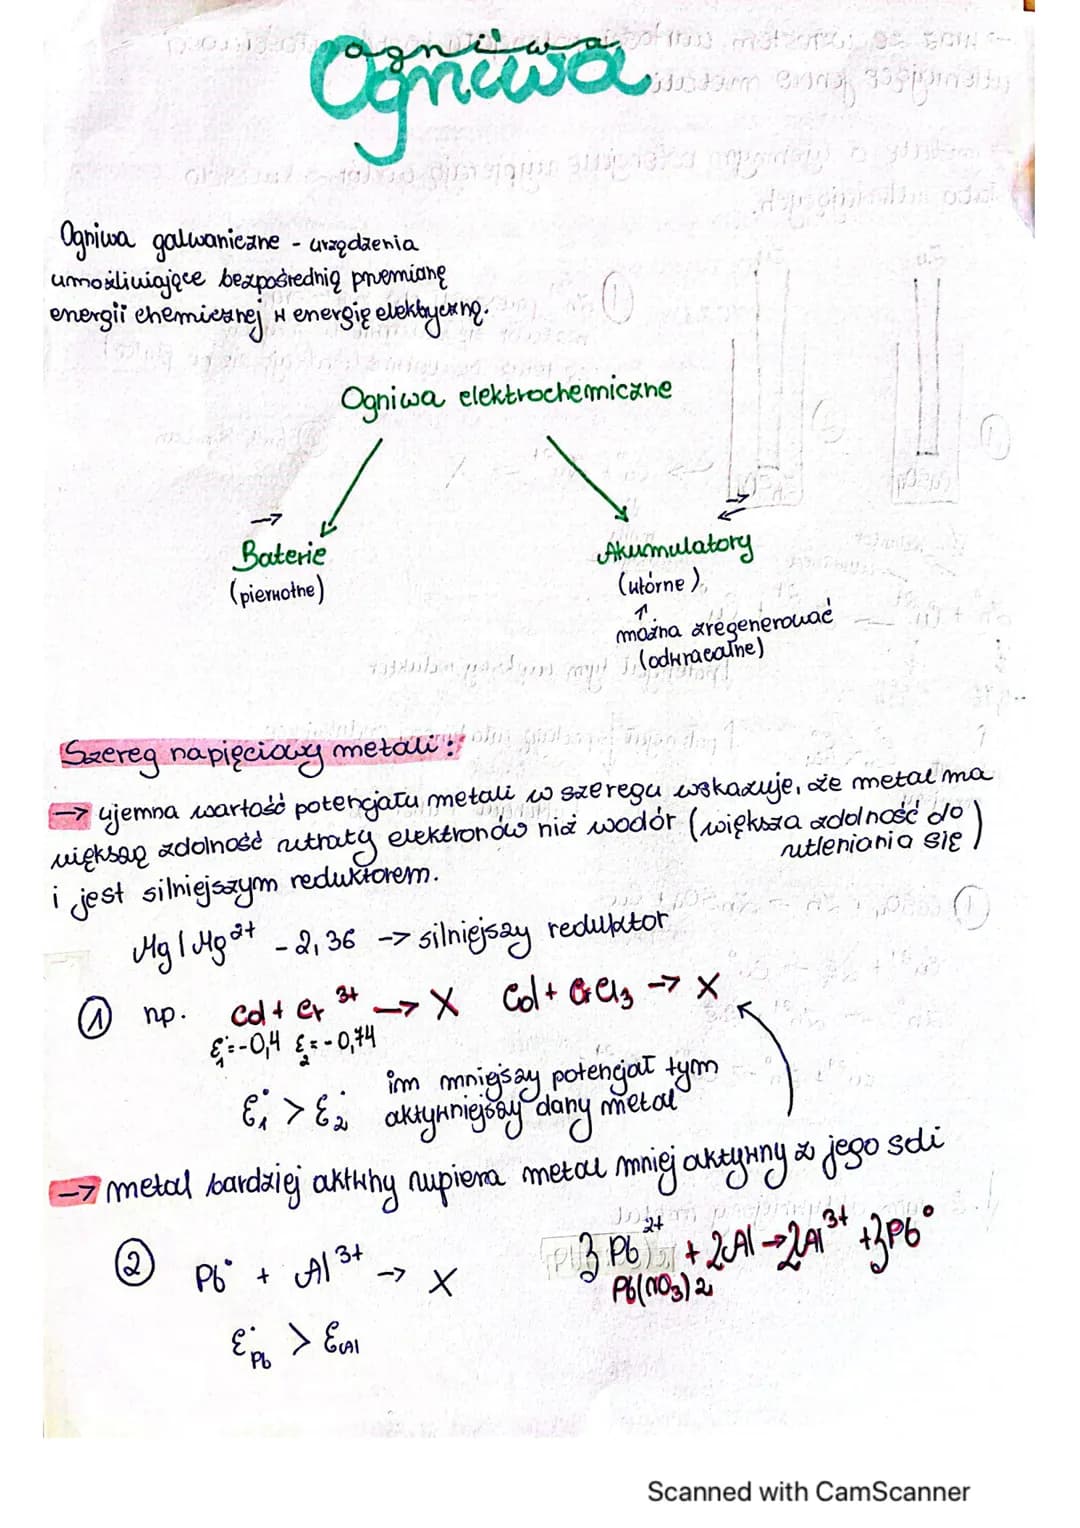 Ogniwa
Ogniwa
Ogniwa galwaniczne - urządzenia
umożliwiające bezpośrednią przemianę
energii chemicznej w energię elektryczną.
Ogniwa elektrochemiczne
→
Baterie
(pierwotne)
⇄
Akumulatory
(wtórne)
↑
można zregenerować
(odwracalne)
Szereg napięciowy metali:
→ ujemna wartość potencjału metali w szeregu wskazuje, że metal ma
większą zdolność utraty elektronów niż wodór (większa zdolność do
utleniania się)
i jest silniejszym reduktorem.
Mg | Mg²⁺ -2,36 -> silniejszy reduktor
① np. Cd + Cr³⁺ → X Cd + CrCl₃ → X
ε₁°=-0,4 ε₂=-0,74
ε₁° > ε₂° im mniejszy potencjał tym
aktywniejszy dany metal
→ metal bardziej aktwny wypiera metal mniej aktywny z jego soli
② Pb° + Al³⁺ → X 3Pb²⁺ + 2Al → 2Al³⁺ + 3Pb°
Pb(NO₃)₂
ε°Pb > εAl
Scanned with CamScanner